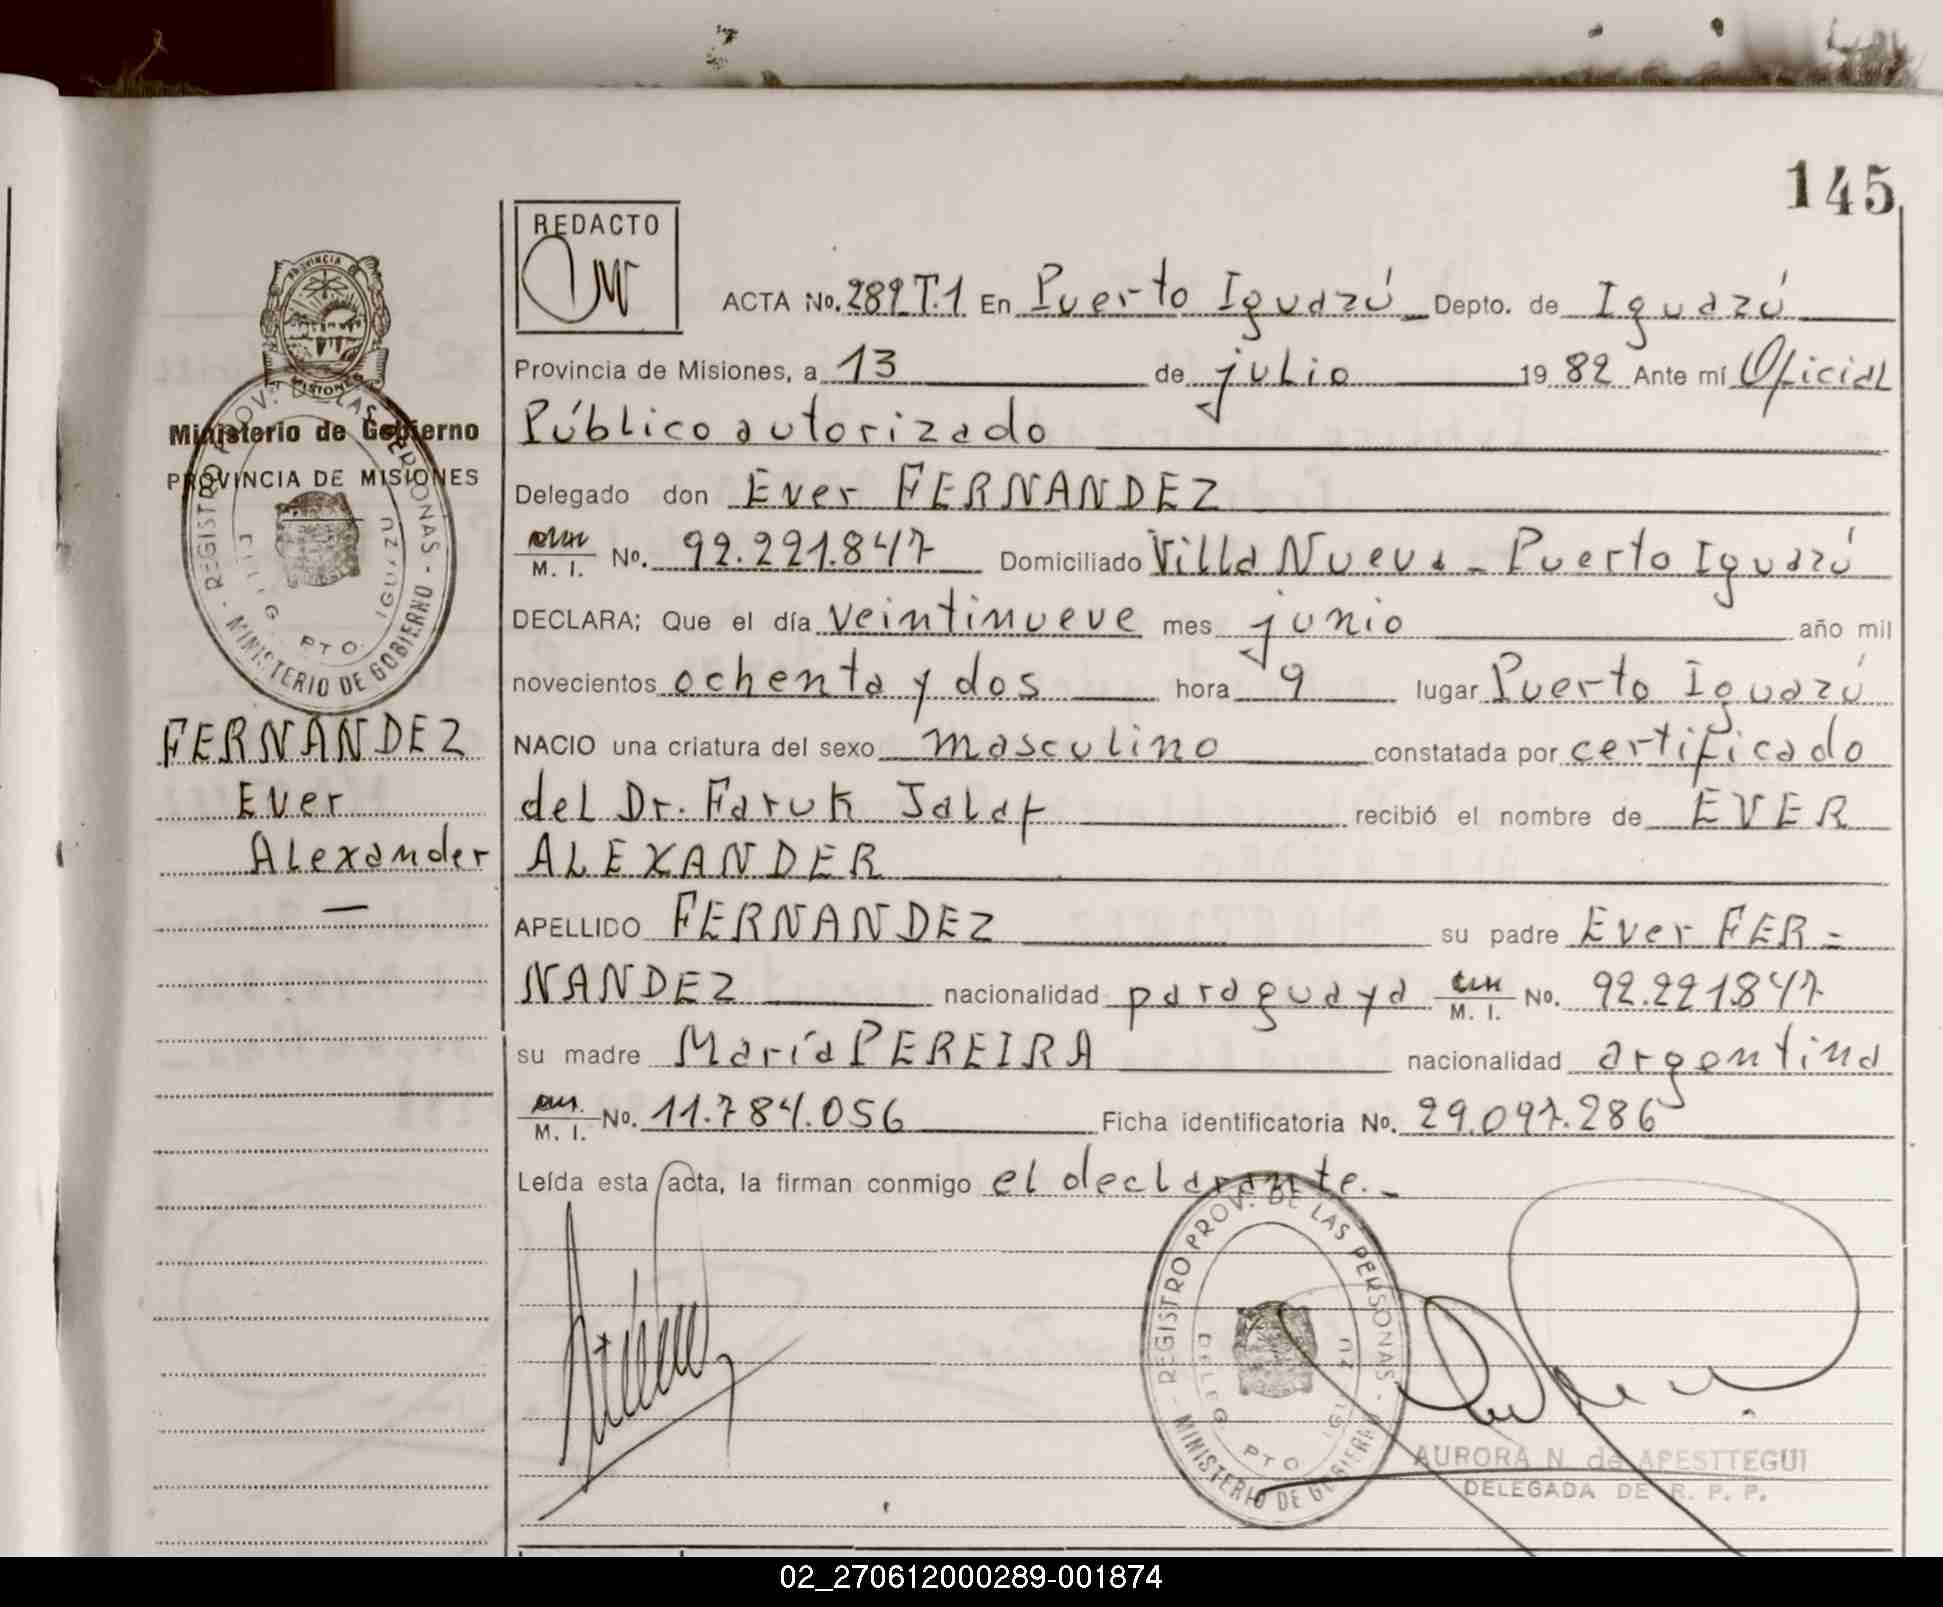 145
REDACTO
ACTA No. 289 T.1 En Puerto Iguazú Depto. de Iguazú
Provincia de Misiones, a 13 de julio 1982 Ante mí Oficial
Público autorizado
Delegado don Ever FERNANDEZ
M. I. No. 92.221.847 Domiciliado Villa Nueva - Puerto Iguazú
DECLARA; Que el día veintinueve mes junio año mil
novecientos ochenta y dos hora 9 lugar Puerto Iguazú
NACIO una criatura del sexo masculino constatada por certificado
del Dr. Faruk Jalaf recibió el nombre de EVER
ALEXANDER
APELLIDO FERNANDEZ su padre Ever FER=
NANDEZ nacionalidad paraguaya M. I. No. 92.221.847
su madre María PEREIRA nacionalidad argentina
M. I. No. 11.784.056 Ficha identificatoria No. 29.097.286
Leída esta acta, la firman conmigo el declarante.-
PROVINCIA DE MISIONES
Ministerio de Gobierno
PROVINCIA DE MISIONES
REGISTRO PROV. DE LAS PERSONAS - MINISTERIO DE GOBIERNO -
DELEG. PTO. IGUAZU
FERNANDEZ
Ever
Alexander
REGISTRO PROV. DE LAS PERSONAS - MINISTERIO DE GOBIERNO -
DELEG. PTO. IGUAZU
AURORA N. de APESTTEGUI
DELEGADA DE R. P. P.
02_270612000289-001874